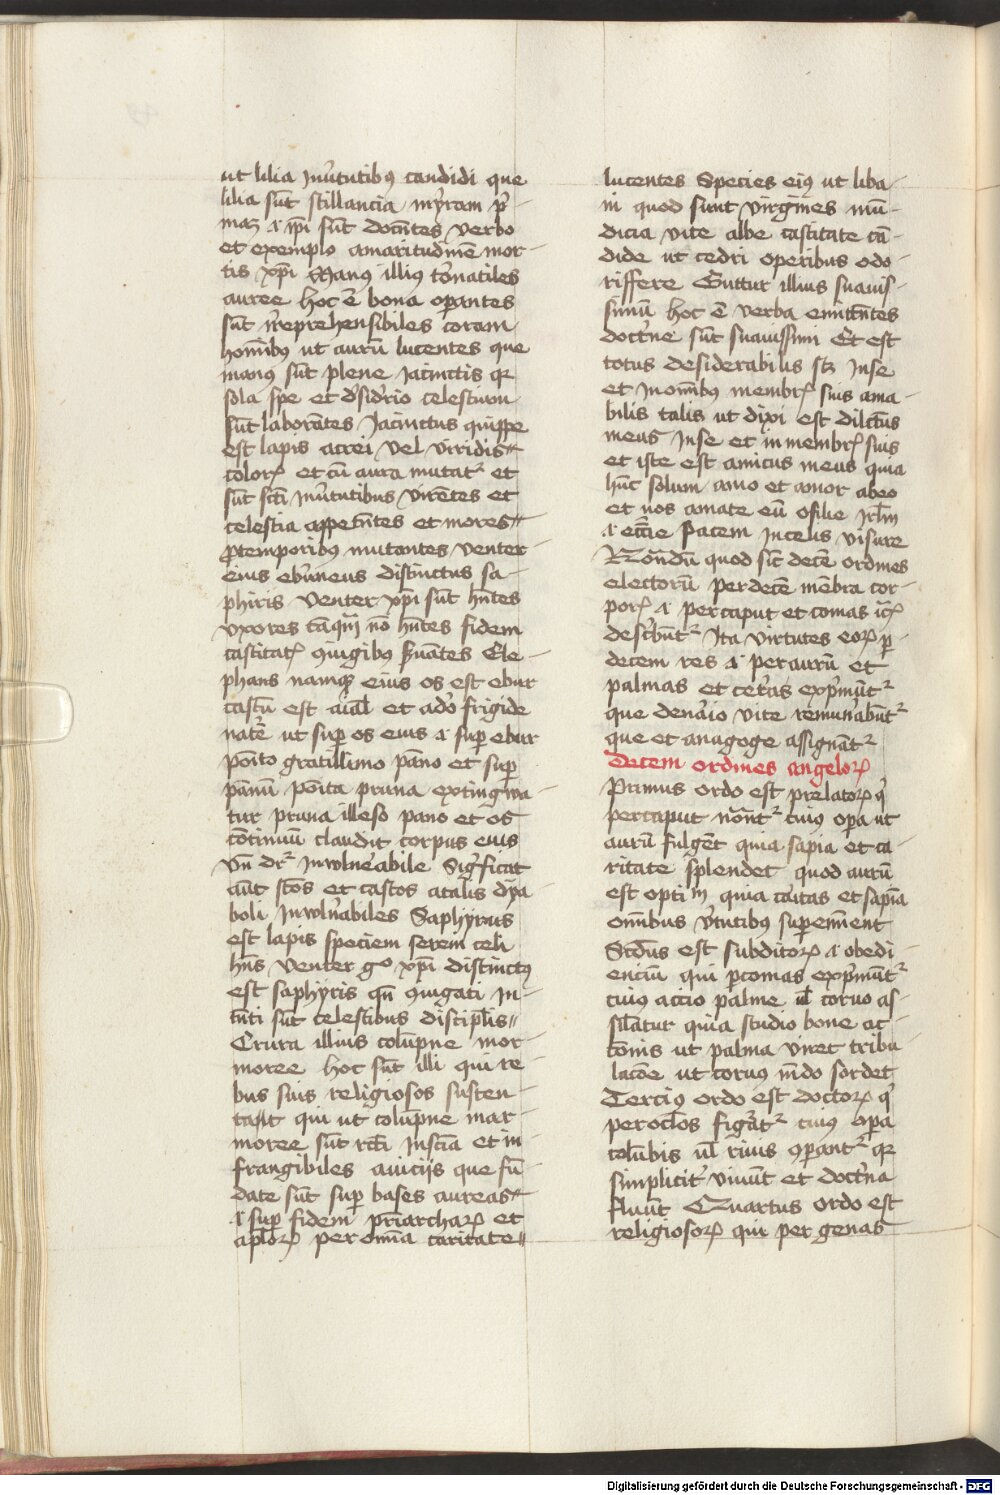 ut lilia in v̓tutibꝰ candidi que
lilia sūt stillancia mirram p̓
maꝫ ⁊ ip̄i sūt docn̄tes verbo
et exemplo amaritudinē mor-
tis xp̄i Manꝰ illiꝰ to̓natiles
auree hoc ē bona operantes
sūt irreprehensibiles coram
hoīnibꝰ ut aurū lucentes que
manꝰ sūt plene iacinctis qꝛ
sola spe et d̓sid̓rio celestium
sūt laborātes Iacinctus quippe
est lapis aerei vel viridis
coloꝝ et cū aura mutat᷑ et
sūt sct̄i in v̓tutibus virētes et
celestia appetn̄tes et mores
ꝓ temporibꝰ mutantes venter
eius eburneus distinctus sa-
phiris Venter xp̄i sūt hn̄tes
vxores tāqm̄ nō hn̄tes fidem
castitatꝭ ꝯiugibꝰ s̓uātes Ele-
phans namqꝫ eius os est ebur
castū est aīal et adeo frigide
nat᷑e ut suꝑ os eius ⁊ suꝑ ebur
poīto gratissimo pāno et suꝑ
pānū poīta pruna extingwa
tur pruna illeso pano et os
cōtinuū claudit corpus eius
vn̄ dr᷑ inwlnerabile Significat
aūt sct̄os et castos a telis dya
boli inwln̓abiles Saphyrus
est lapis speciem sereni celi
hn̄s venter gͦ xp̄i distinctꝰ
est saphyris qn̄ ꝯiugati in-
tn̄ti sūt celestibus disciplīs
Crura illius colūpne mor-
moree hoc sūt illi qui re
bus suis religiosos susten-
tant qui ut colūpne mar-
moree sūt rct̄i iusticia et in-
frangibiles auiciis que fū-
date sūt suꝑ bases aureas
⁊ suꝑ fidem p̓riarchaꝝ et
apl̄oꝝ per omīa caritate
lucentes Species eiꝰ ut liba-
ni quod sunt virgines mū-
dicia vite albe castitate cā-
dide ut cedri operibus odo-
riffere Guttur illius suauis-
simū hoc ē verba emittn̄tes
doct̓ne sūt suauissimi Et est
totus desiderabilis sꝫ in se
et in omībꝰ membrꝭ suis ama-
bilis talis ut dixi est dilectus
meus in se et in membrꝭ suis
et iste est amicus meus quia
hūc solum amo et amor ab eo
et uos amate eū o filie irl̄m
⁊ ecc̄ie pacem in celis visure
Nōndū quod sic̄ decē ordines
electorū per decē mēbra cor-
porꝭ ⁊ per caput et comas ic̄ꝭ
describūt᷑ Ita virtutes eoꝝ ꝑ
decem res ⁊ per aurū et
palmas et cet̓as exp̓mūt᷑
que denario vite remun̓abūt᷑
que et anagoge assignāt᷑
Decem ordines angeloꝝ
Primus ordo est prelatoꝝ qͥ
per caput notant᷑ cuiꝰ opera ut
aurū fulgēt quia sapīa et ca-
ritate splendet quod aurū
est optim̄ quia caritas et sapīa
omībus v̓tutibꝰ superemīent
Scd̄us est subditoꝝ ⁊ obedi-
enciū qui ꝑ comas exp̓mūt᷑
cuiꝰ accio palme ul̄ coruo as-
silatur quia studio bone ac-
cōnis ut palma viret tribu
lacōe ut coruꝰ mūdo sordet
Terciꝰ ordo est doctoꝝ qͥ
per ocl̄os figurāt᷑ cuiꝰ opera
colūbis ul̄ riuis ꝯparant᷑ qꝛ
simplicit̓ viuūt et doct̓na
fluūt Quartus ordo est
religiosoꝝ qui per genas
Digitalisierung gefördert durch die Deutsche Forschungsgemeinschaft - DFG